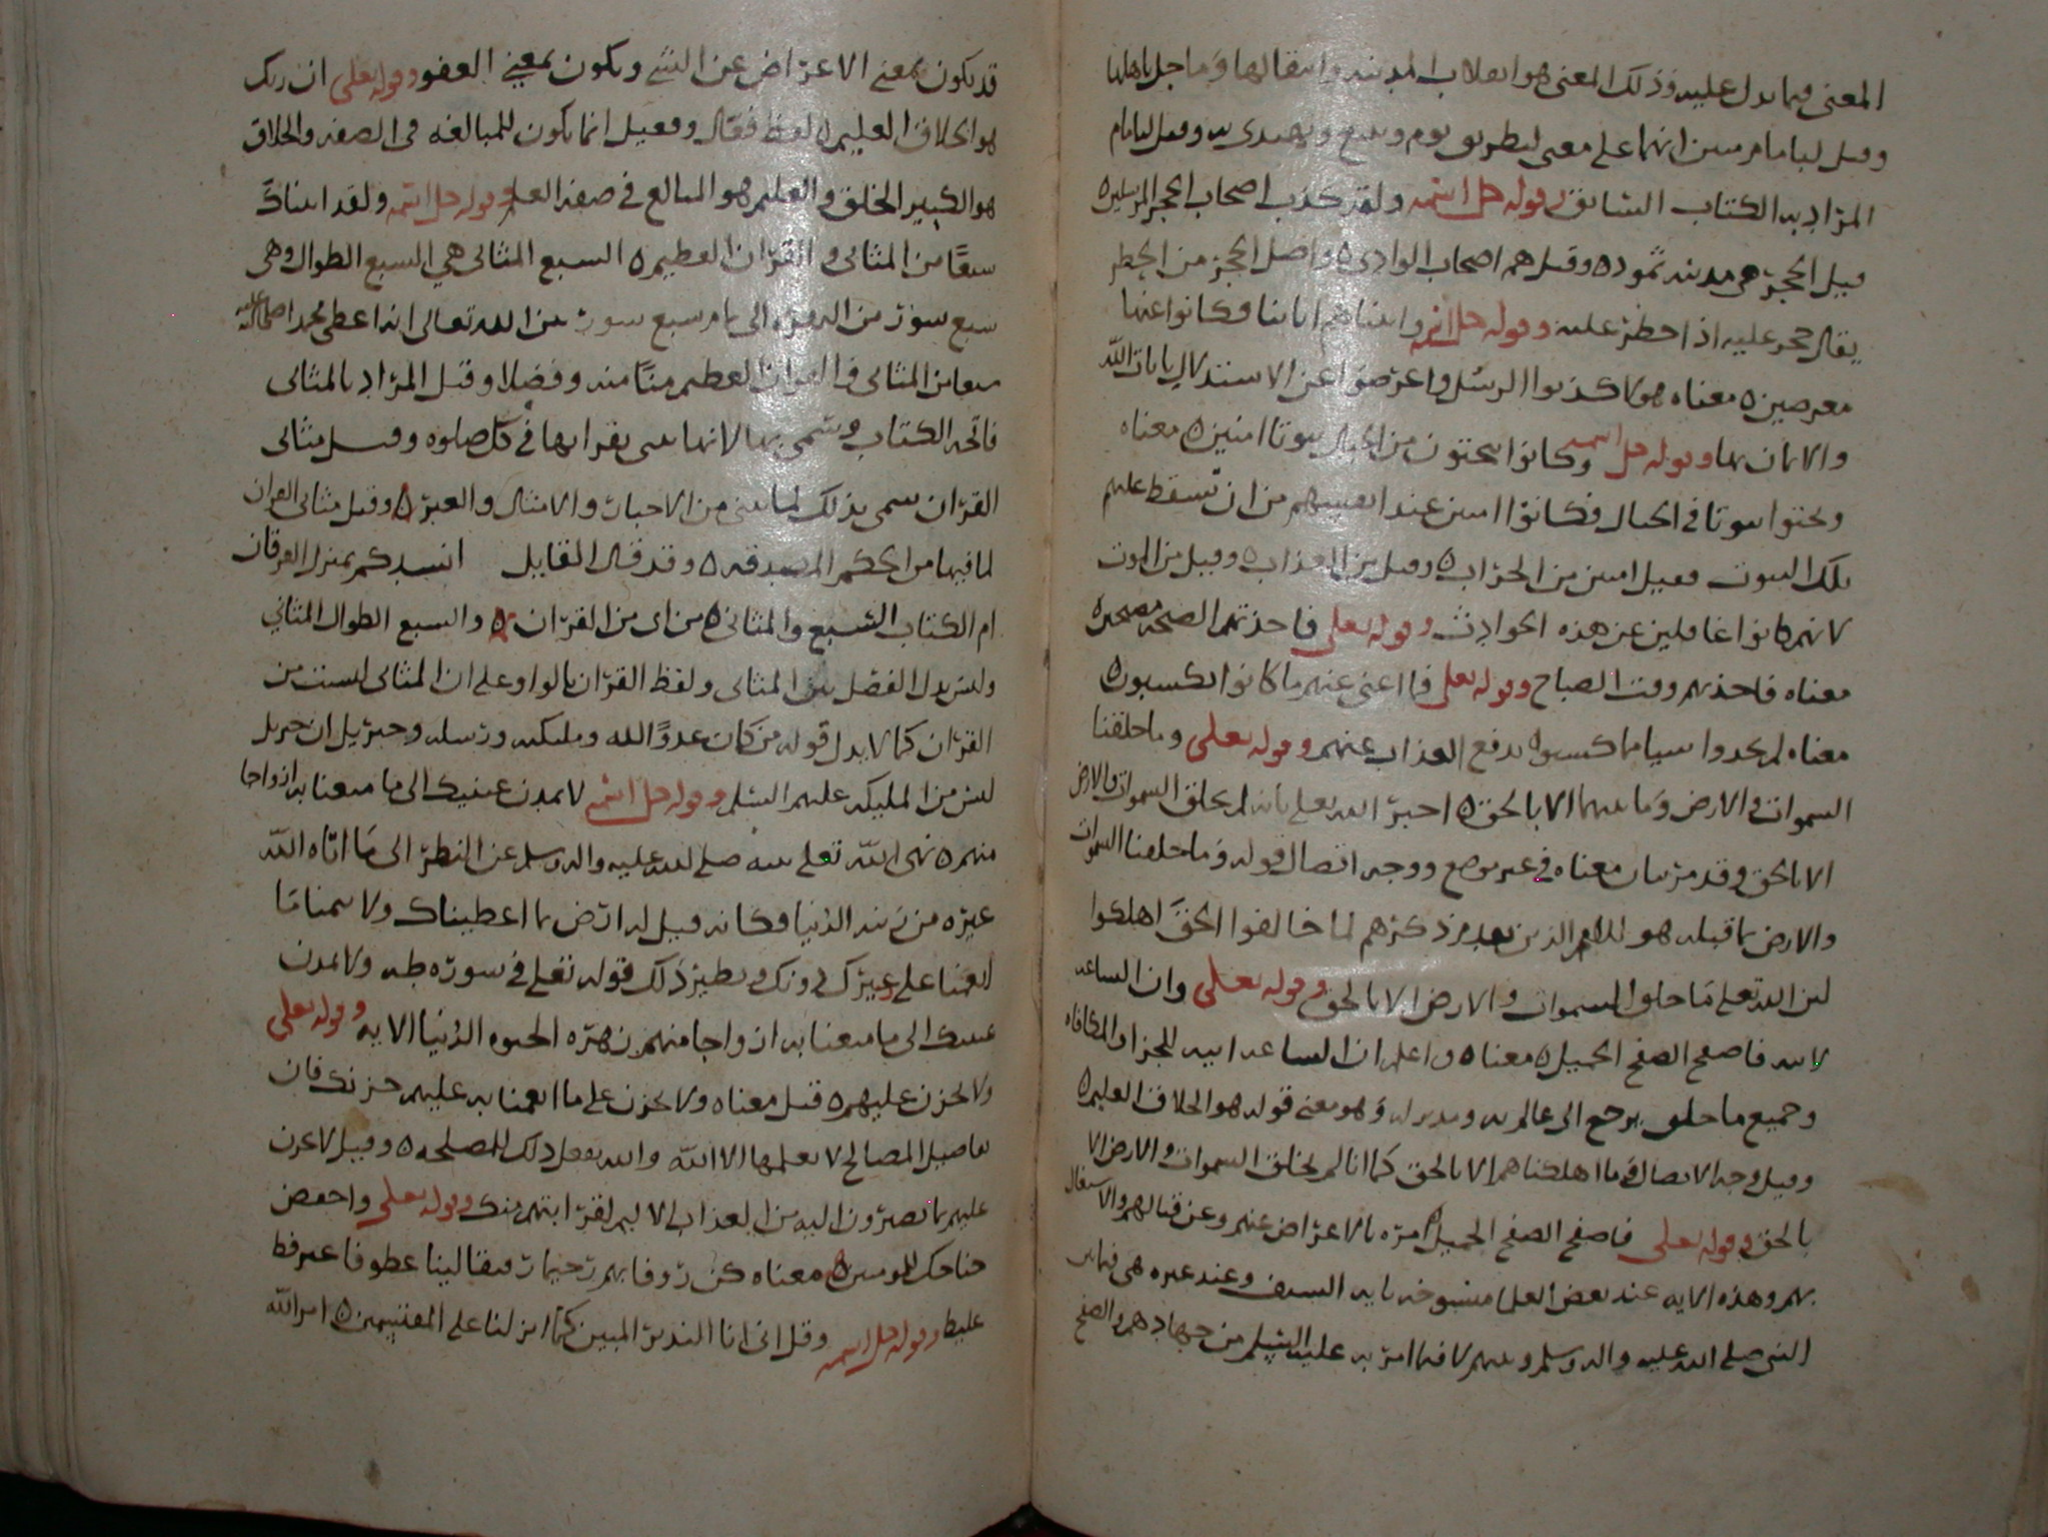 المعنى فيما يدل عليه وذلك المعنى هو انقلاب المدينة وانتقالها وما حل باهلها
وقيل لبامام مبين انهما على معنى لبطريق يوم ويتبع ويهتدى به وقيل لبامام
المراد به الكتاب السابق وقوله جل اسمه ولقد كذب اصحاب الحجر المرسلين ه
قيل الحجر هى مدينة ثمود ه وقيل هم اصحاب الوادى ه واصل الحجر من الحظر
يقال حجر عليه اذا حظر عليه وقوله جل اسمه واتيناهم اياتنا فكانوا عنها
معرضين ه معناه هو لا كذبوا الرسل واعرضوا عن الاستدلال بايات الله
والايمان بها وقوله جل اسمه وكانوا ينحتون من الجبال بيوتا امنين ه معناه
ونحتوا بيوتا فى الجبال فكانوا امنين عند انفسهم من ان تسقط عليهم
تلك البيوت فقيل امنين من الخراب ه وقيل من العذاب ه وقيل من الموت
لانهم كانوا غافلين عن هذه الحوادث وقوله تعلى فاخذتهم الصيحة مصبحين ه
معناه فاخذتهم وقت الصباح وقوله تعلى فما اغنى عنهم ما كانوا يكسبون ه
معناه لم يجدوا شيا مما كسبوا يدفع العذاب عنهم وقوله تعلى وما خلقنا
السموات والارض وما بينهما الا بالحق ه اخبر الله تعلى بانه لم يخلق السموات والارض
الا بالحق وقد مر بيان معناه فى غير موضع ووجه اتصال قوله وما خلقنا السموات
والارض بما قبله هو ان الامم الذين تقدم ذكرهم لما خالفوا الحق اهلكوا
لان الله تعلى ما خلق السموات والارض الا بالحق وقوله تعلى وان الساعة
لاتيه فاصفح الصفح الجميل ه معناه ه واعلم ان الساعة اتيه للجزا والمكافاه
وجميع ما خلق يرجع الى عالم به ومدبر له وهو معنى قوله هو الخلاق العليم ه
وقيل وجه الاتصال فى ما اهلكناهم الا بالحق كما انا لم نخلق السموات والارض الا
بالحق وقوله تعلى فاصفح الصفح الجميل امره بالاعراض عنهم وعن قتالهم والاشتغال
بهم وهذه الايه عند بعض العلما منسوخه بايه السيف وعند غيره هى فيما بين
النبى صلى الله عليه واله وسلم وبينهم لا فيما امر به عليه السلم من جهادهم والصفح
قد يكون بمعنى الاعراض عن الشى ويكون بمعنى العفو وقوله تعلى ان ربك
هو الخلاق العليم ه لفظ فعال وفعيل انما يكون للمبالغه فى الصفه والخلاق
هو الكثير الخلق والعليم هو المبالغ فى صفه العلم وقوله جل اسمه ولقد اتيناك
سبعا من المثانى والقران العظيم ه السبع المثانى هى السبع الطوال وهى
سبع سور من البقره الى تمام سبع سور من الله تعالى انه اعطى محمدا صلى الله عليه
سبعا من المثانى والقران العظيم منا منه وفضلا وقيل المراد بالمثانى
فاتحه الكتاب وسمى بها لانها تثنى بقراتها فى كل صلوه وقيل مثانى
القران سمى بذلك لما يثنى من الاخبار والامثال والعبر ه وقيل مثانى القران
لما فيها من الحكم المصدقه ه وقد قال القايل انشدكم بمنزل الفرقان
ام الكتاب السبع والمثانى ه من اى من القران ه والسبع الطوال المثانى
وليس يدل الفصل بين المثانى ولفظ القران بالواو على ان المثانى ليست من
القران كما لا يدل قوله من كان عدوا لله ومليكته ورسله وجبريل ان جبريل
ليس من المليكه عليهم السلم وقوله جل اسمه لا تمدن عينيك الى ما متعنا به ازواجا
منهم ه نهى الله تعلى نبيه صلى الله عليه واله وسلم عن النظر الى ما اتاه الله
غيره من زينه الدنيا فكانه قيل له ارض بما اعطيناك ولا تتمنا ما
انعمنا على غيرك دونك ونظير ذلك قوله تعلى فى سوره طه ولا تمدن
عينيك الى ما متعنا به ازواجا منهم زهره الحيوه الدنيا الايه وقوله تعلى
ولا تحزن عليهم ه قيل معناه ولا تحزن على ما انعمنا به عليهم حزنك فان
تفاصيل المصالح لا يعلمها الا الله والله يفعل ذلك للمصلحه ه وقيل لا تحزن
عليهم بما يصيرون اليه من العذاب الاليم لقرابتهم منك وقوله تعلى واخفض
جناحك للمومنين ه معناه كن روفا بهم رحيما رفيقا لينا عطوفا غير فظ
غليظ وقوله جل اسمه وقل انى انا النذير المبين كما انزلنا على المقتسمين ه امر الله